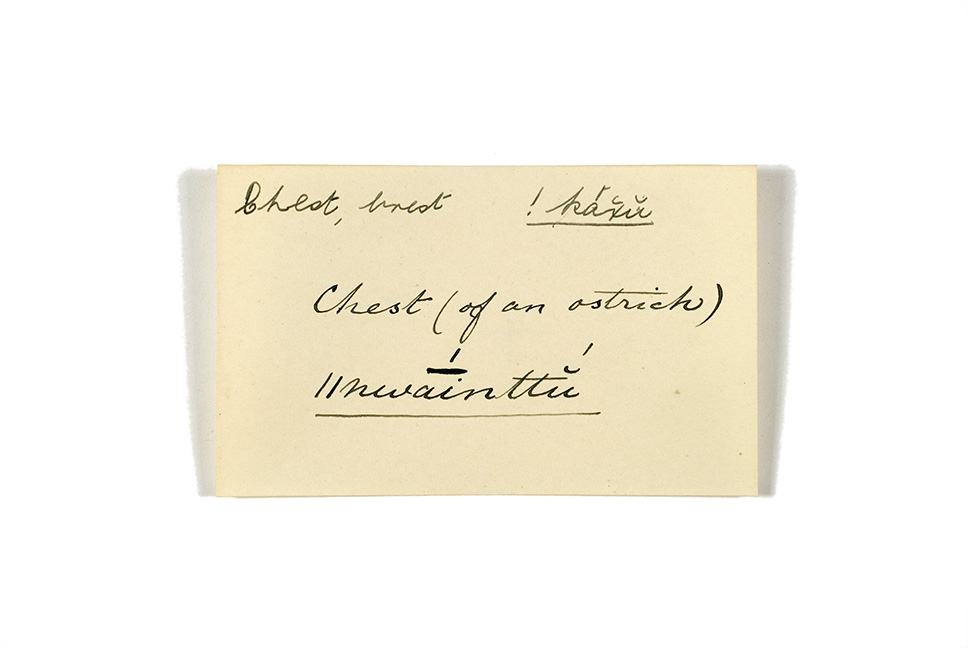 Chest, brest ! káχŭ
Chest (of an ostrich)
ǁnwā́inttŭ́